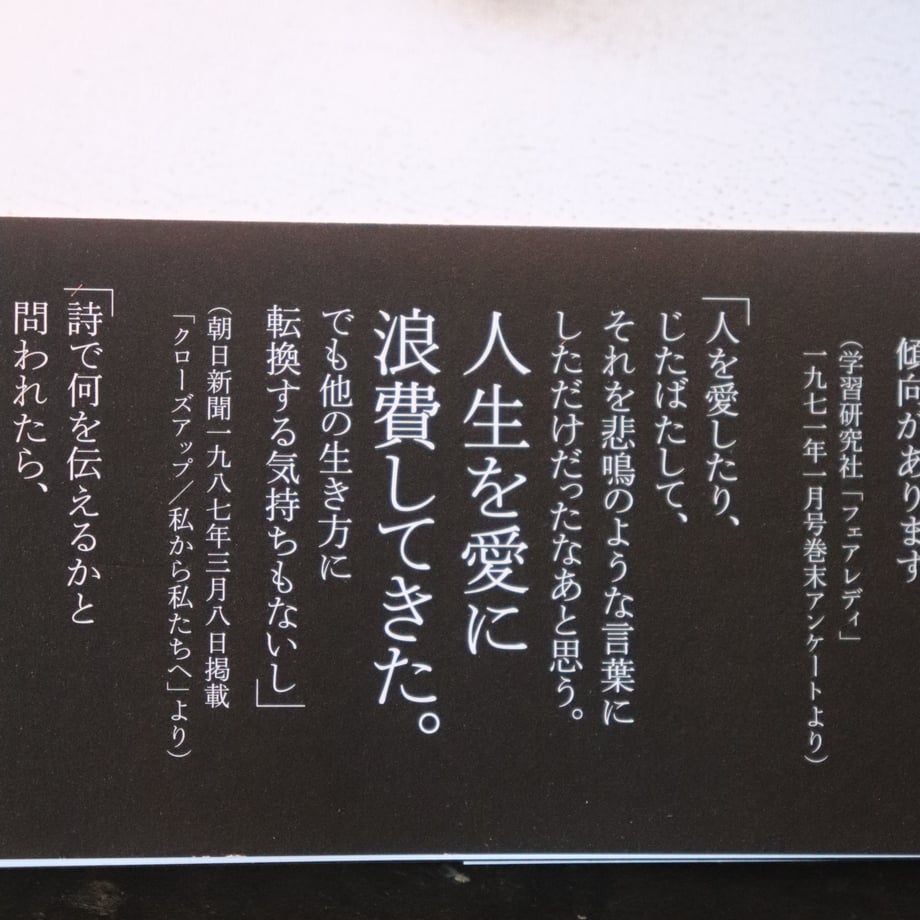 傾向があります
(学習研究社「フェアレディ」
一九七一年一月号巻末アンケートより)
「人を愛したり、
じたばたして、
それを悲鳴のような言葉に
しただけだったなあと思う。
人生を愛に
浪費してきた。
でも他の生き方に
転換する気持ちもないし」
(朝日新聞一九八七年三月八日掲載
「クローズアップ/私から私たちへ」より)
「詩で何を伝えるかと
問われたら、